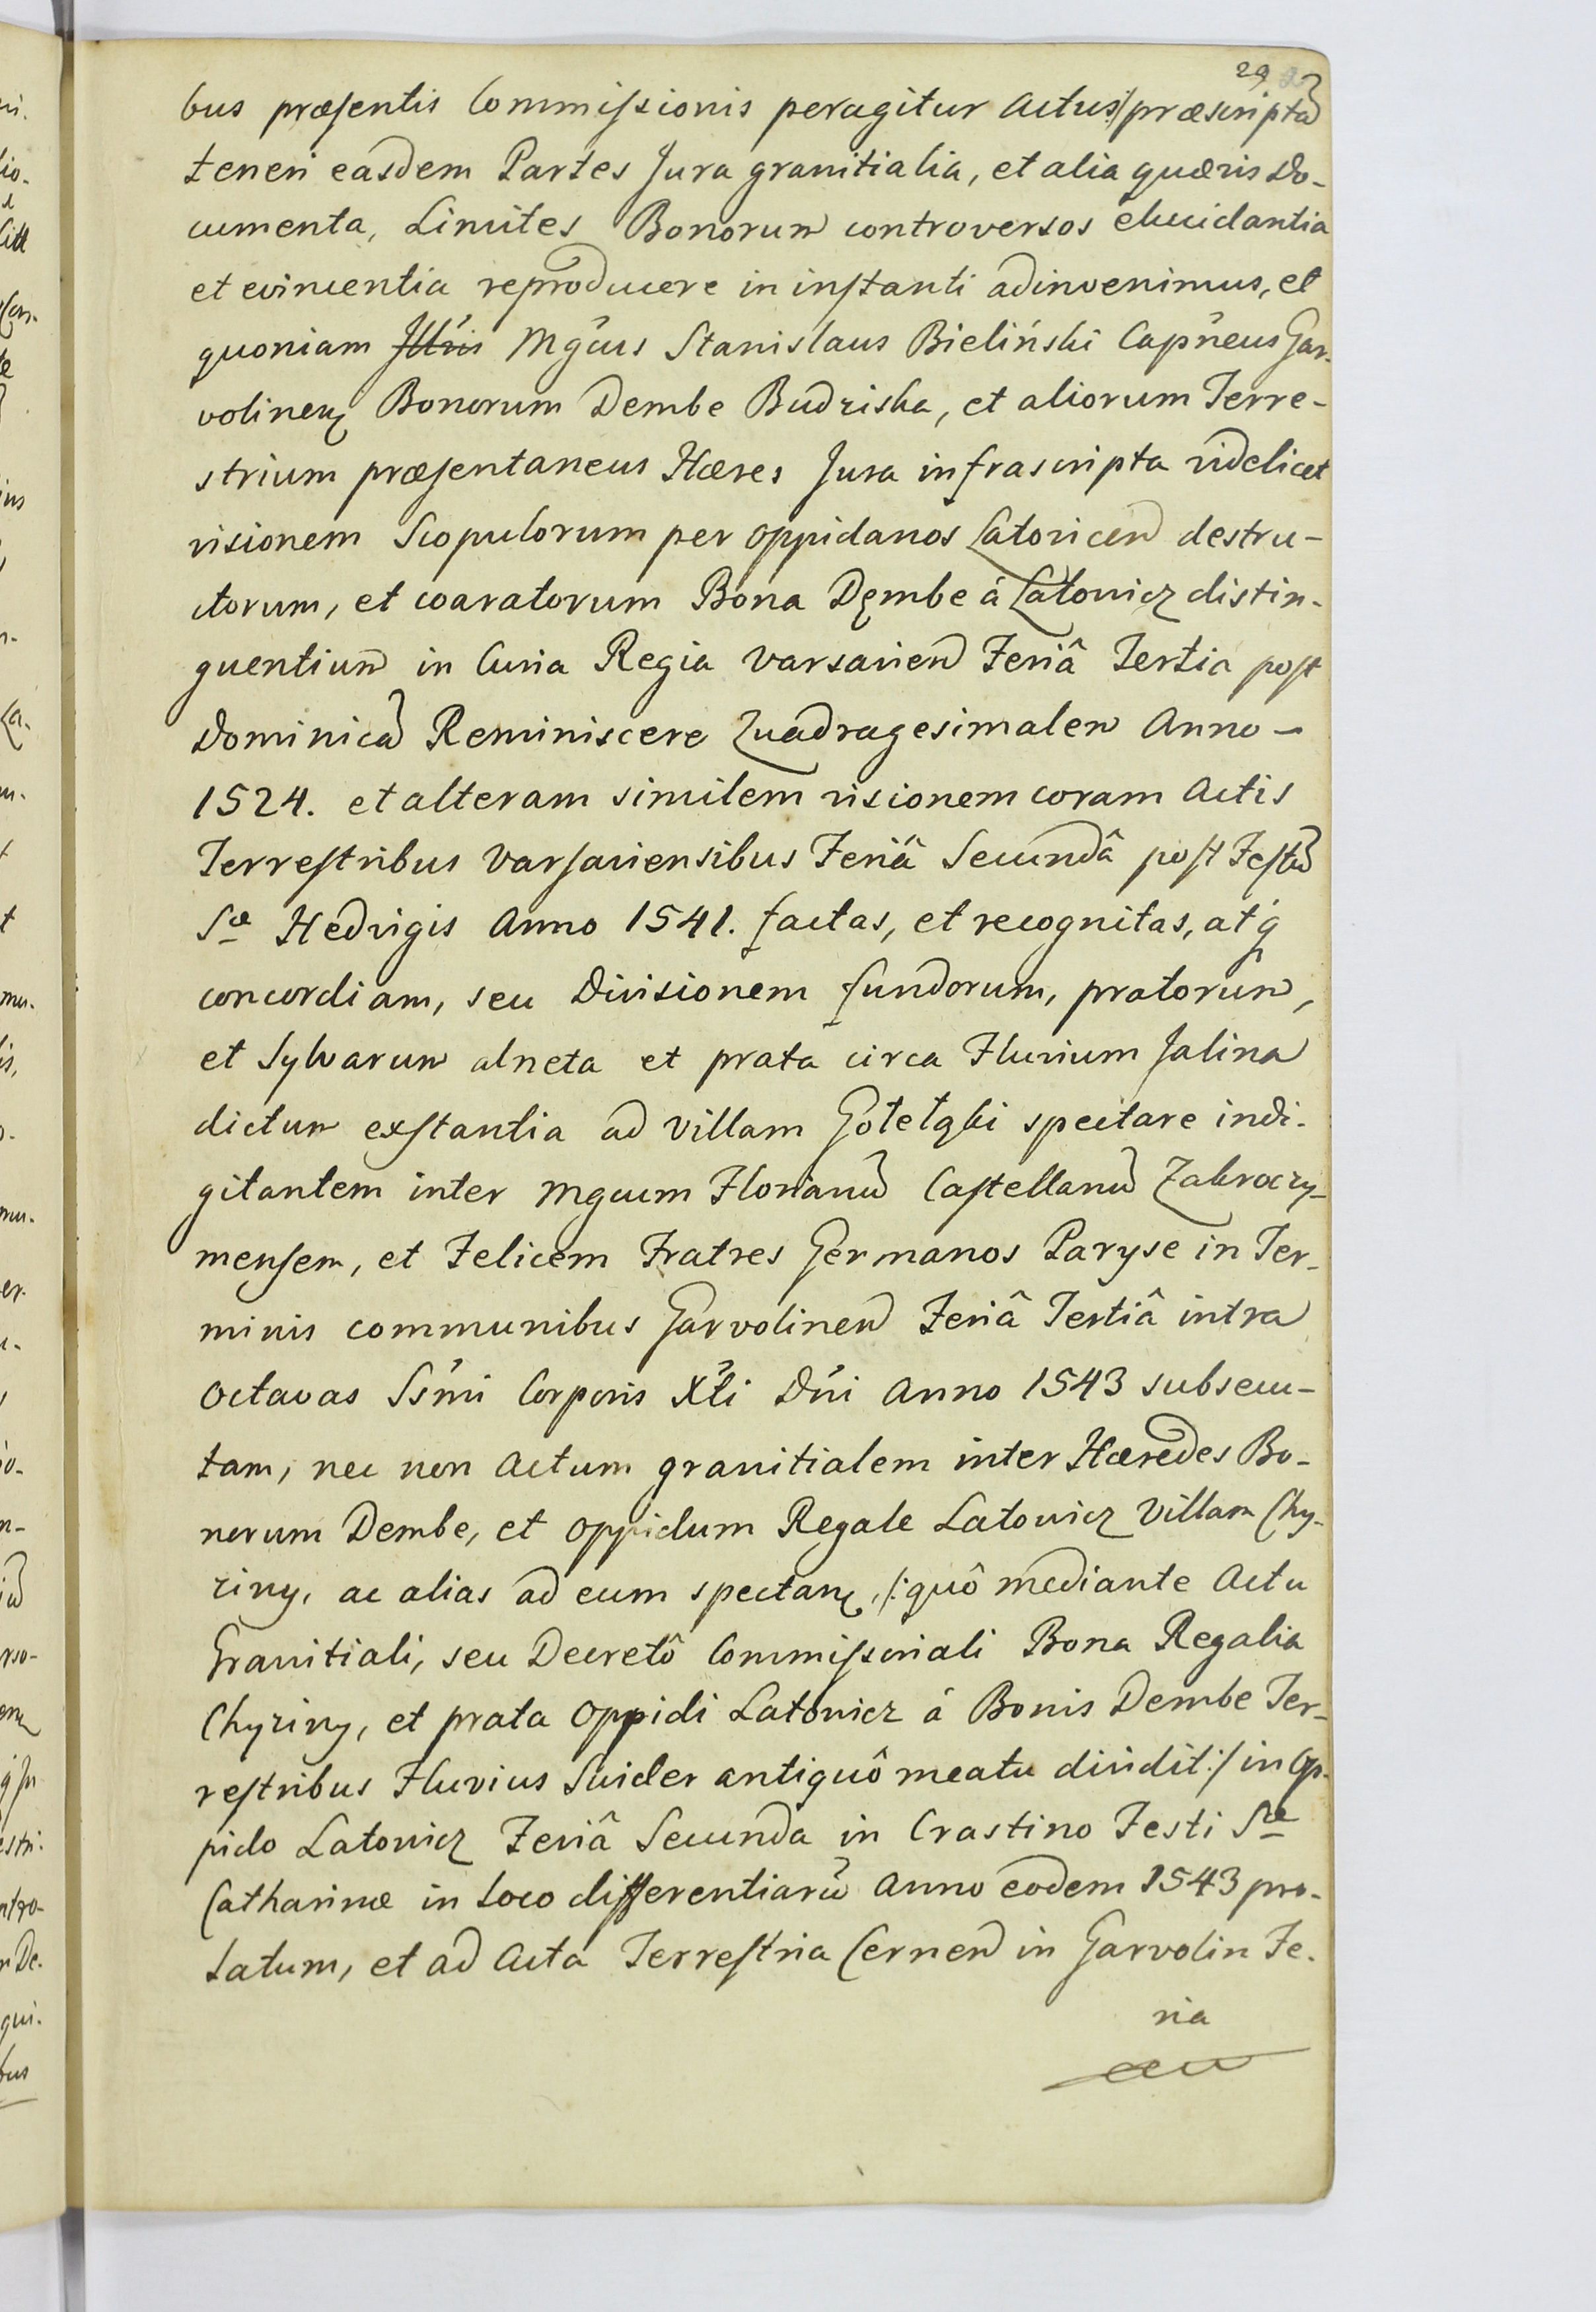 29
bus præsentis Commissionis peragitur Actus:/ præscripta
teneri easdem Partes Jura granitialia, et alia quævis Do-
cumenta, Limites Bonorum controversos elucidantia
et evincentia reproducere in instanti adinvenimus, et
quoniam Illris Mgcus Stanislaus Bieliński Capneus Gar-
volinen Bonorum Dembe Budziska, et aliorum Terre-
strium præsentaneus Hæres Jura infrascripta videlicet
visionem Scopulorum per oppidanos Latovicen destru-
ctorum, et coaratorum Bona Dembe á Latowicz distin-
guentium in Curia Regia Varsavien Feriâ Tertia post
Dominicam Reminiscere Quadragesimalem Anno –
1524. et alteram similem visionem coram Actis
Terrestribus Varsaviensibus Feriâ Secundâ post Festum
Sæ Hedvigis Anno 1541. factas, et recognitas, atq
concordiam, seu Divisionem fundorum, pratorum,
et Sylvarum alneta et prata circa Fluvium Jalina
dictum exstantia ad Villam Gołełąki spectare indi-
gitantem inter Mgcum Florianum Castellanum Zakroczy-
mensem, et Felicem Fratres Germanos Paryse in Ter-
minis communibus Garvolinen Feriâ Tertiâ intra
Octavas Ssmi Corporis Xti Dni Anno 1543 subsecu-
tam, nec non Actum granitialem inter Hæredes Bo-
norum Dembe, et oppidum Regale Latowicz Villam Chy-
ziny, ac alias ad eum spectan, /: quô mediante Actu
Granitiali, seu Decretô Commissoriali Bona Regalia
Chyziny, et prata Oppidi Latowicz á Bonis Dembe Ter-
restribus Fluvius Swider antiquô meatu dividit :/ in Op-
pido Latowicz Feriâ Secunda in Crastino Festi Sæ
Catharinæ in Loco differentiarum Anno eodem 1543 pro-
latum, et ad Acta Terrestria Cernen in Garvolin Fe-
ria